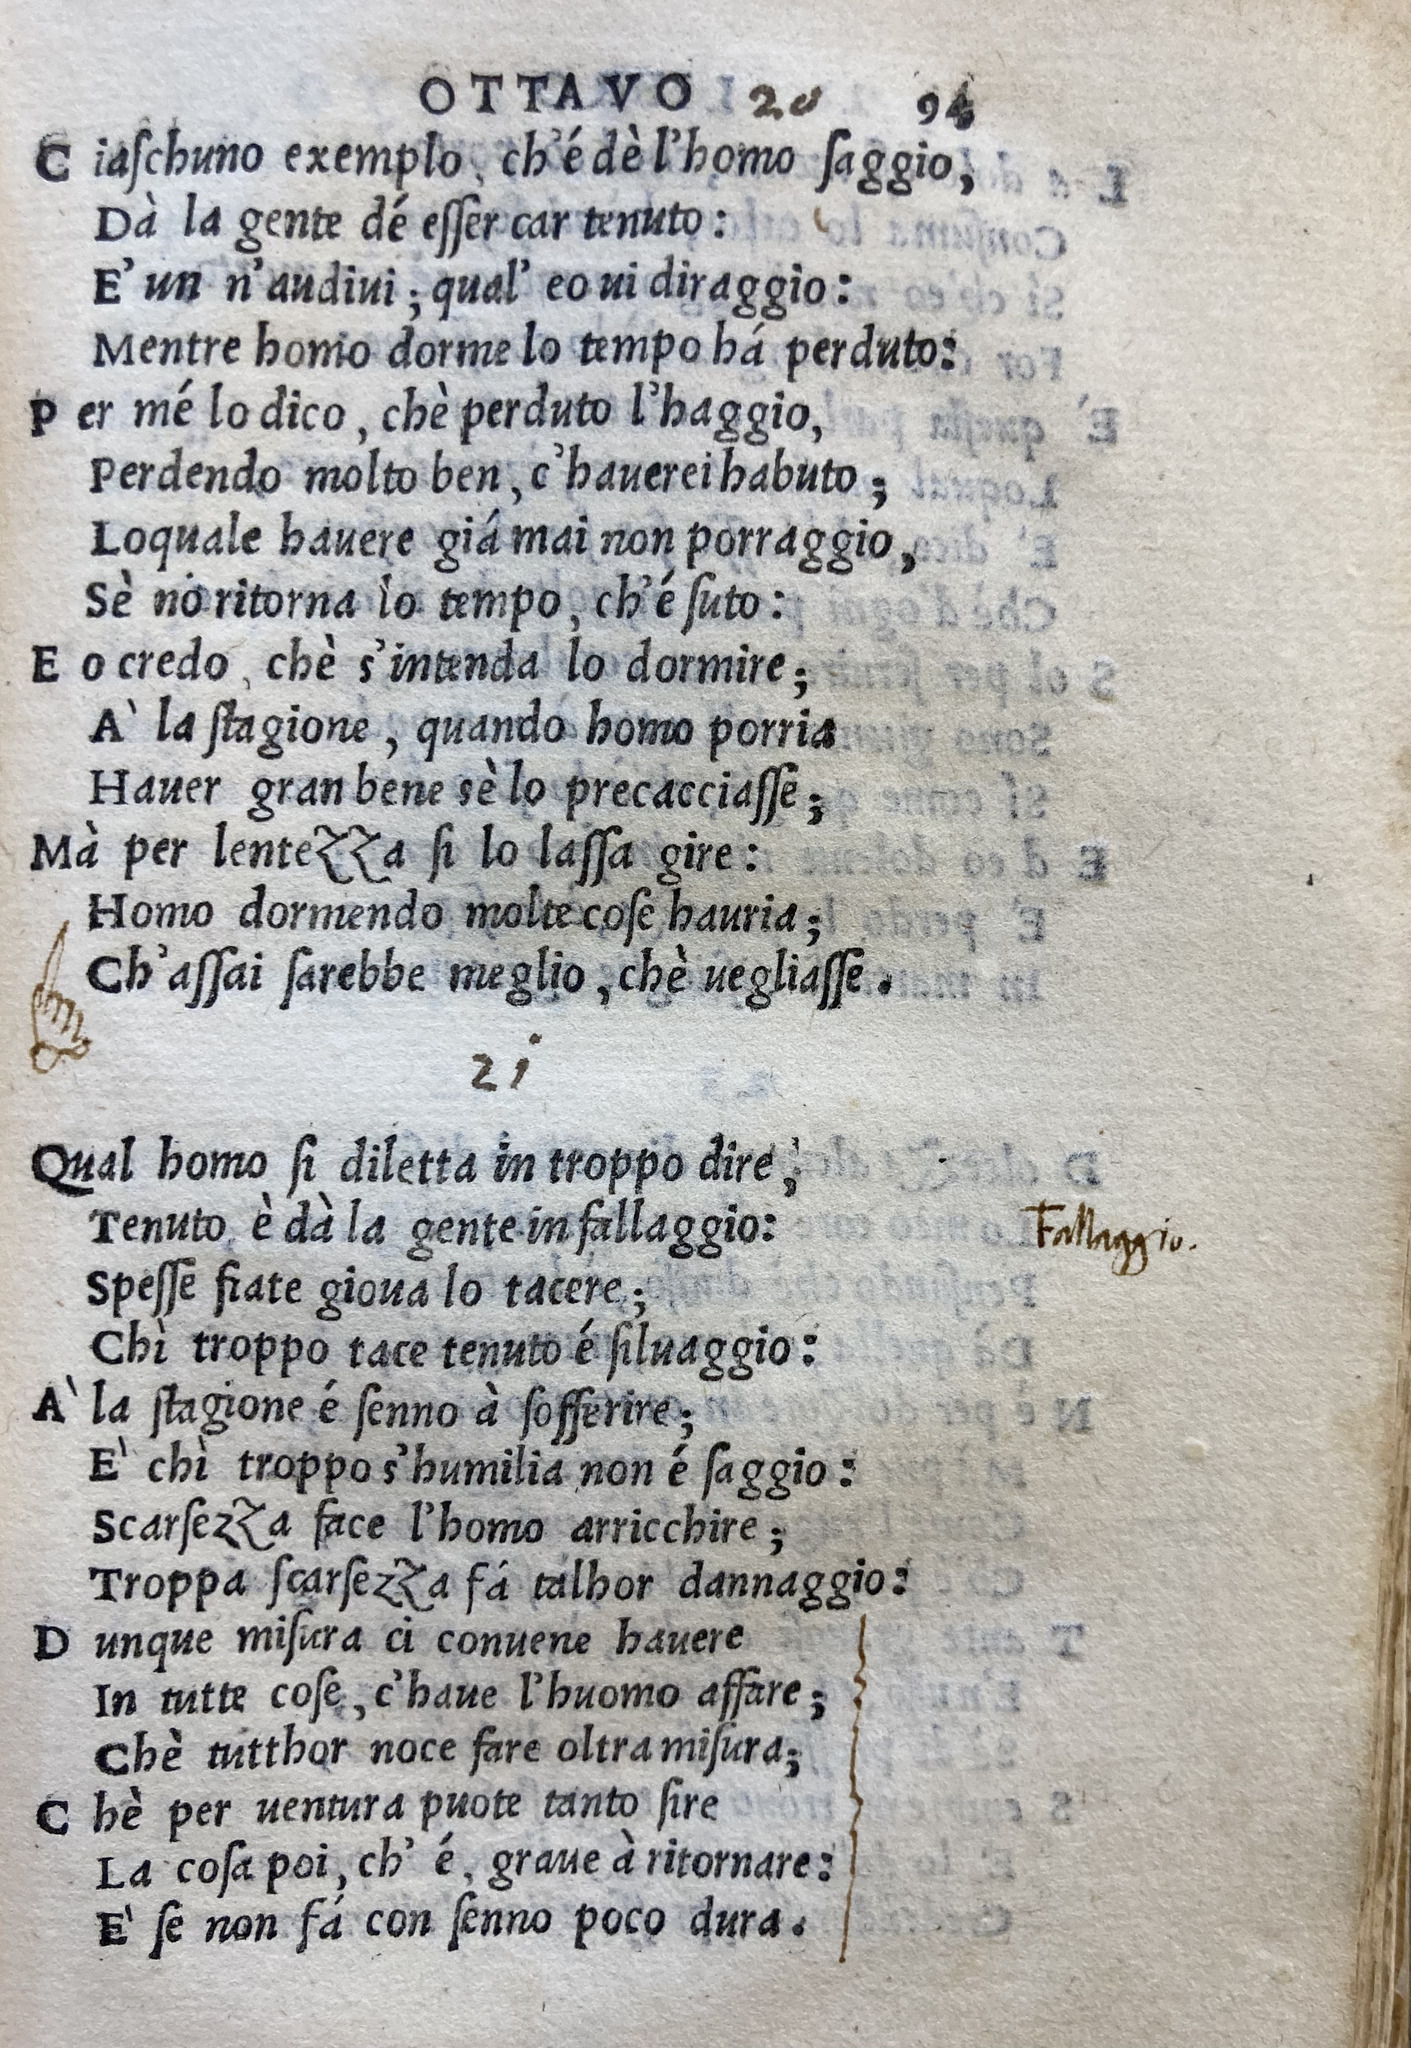 OTTAVO 20 94
Ciaſchuno exemplo, ch'é dè l'homo ſaggio,
Dà la gente dé eſſer car tenuto:
E' un n'audiui; qual' eo ui diraggio:
Mentre homo dorme lo tempo há perduto:
Per mé lo dico, chè perduto l'haggio,
Perdendo molto ben, c'hauerei habuto;
Loquale hauere giá mai non porraggio,
Sè nó ritorna lo tempo, ch'é ſuto:
Eo credo, chè s'intenda lo dormire;
A' la ſtagione, quando homo porria
Hauer gran bene sè lo precacciaſſe;
Mà per lentezza ſi lo laſſa gire:
Homo dormendo molte coſe hauria;
Ch'aſſai ſarebbe meglio, chè uegliaſſe.
21
Qual homo ſi diletta in troppo dire,
Tenuto è dà la gente in fallaggio:
Fallaggio.
Speſſe fiate gioua lo tacere;
Chì troppo tace tenuto é ſiluaggio:
A' la ſtagione é ſenno à ſofferire;
E' chì troppo s'humilia non é ſaggio:
Scarſezza face l'homo arricchire;
Troppa ſcarſezza fá talhor dannaggio:
Dunque miſura ci conuene hauere
In tutte coſe, c'haue l'huomo affare;
Chè tutthor noce fare oltra miſura;
Chè per uentura puote tanto ſire
La coſa poi, ch' é, graue à ritornare:
E' ſe non fá con ſenno poco dura.